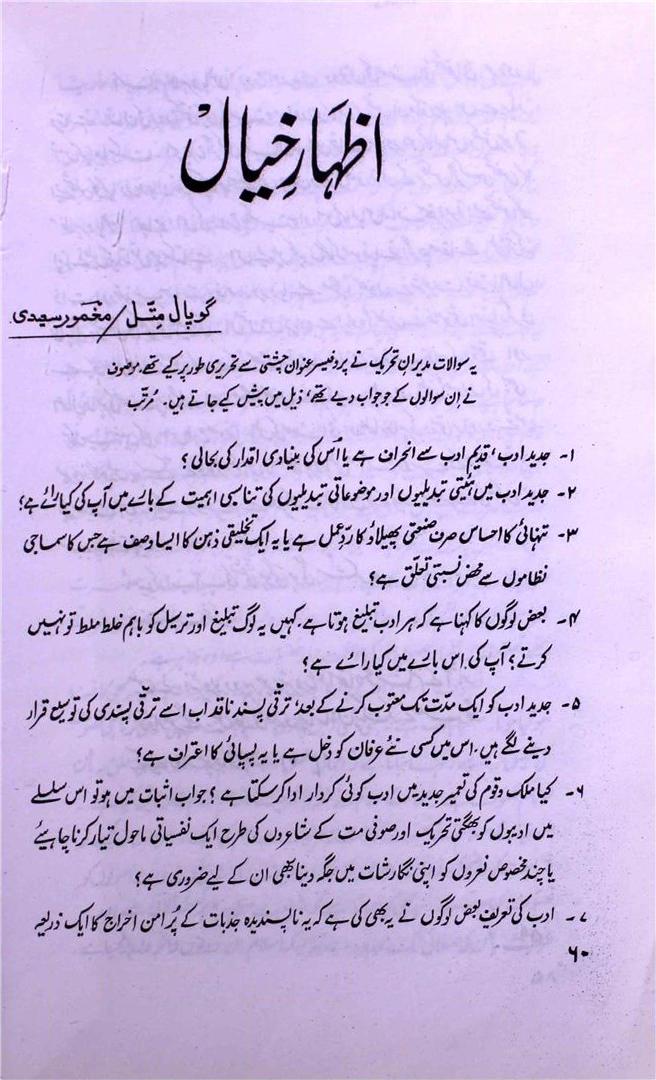 اظہارِ خیال
گوپال مِتّل / مخمور سعیدی
یہ سوالات مدیرانِ تحریک نے پروفیسر عنوان چشتی سے تحریری طور پر کیے تھے۔ موصوف
نے اِن سوالوں کے جو جواب دیے تھے، ذیل میں پیش کیے جاتے ہیں۔ مُرتّب
۱۔ جدید ادب، قدیم ادب سے انحراف ہے یا اُس کی بنیادی اقدار کی بحالی؟
۲۔ جدید ادب میں ہیئتی تبدیلیوں اور موضوعاتی تبدیلیوں کی تناسبی اہمیت کے بارے میں آپ کی کیا رائے ہے؟
۳۔ تنہائی کا احساس صرف صنعتی پھیلاؤ کا ردِّ عمل ہے یا یہ ایک تخلیقی ذہن کا ایسا وصف ہے جس کا سماجی
نظاموں سے محض نسبتی تعلّق ہے؟
۴۔ بعض لوگوں کا کہنا ہے کہ ہر ادب تبلیغ ہوتا ہے۔ کہیں یہ لوگ تبلیغ اور ترسیل کو باہم غلط ملط تو نہیں
کرتے؟ آپ کی اس بارے میں کیا رائے ہے؟
۵۔ جدید ادب کو ایک مدّت تک معتوب کرنے کے بعد، ترقّی پسند ناقد اب اسے ترقّی پسندی کی توسیع قرار
دینے لگے ہیں۔ اس میں کسی نئے عرفان کو دخل ہے یا یہ پسپائی کا اعتراف ہے؟
۶۔ کیا ملک و قوم کی تعمیرِ جدید میں ادب کوئی کردار ادا کر سکتا ہے؟ جواب اثبات میں ہو تو اس سلسلے
میں ادیبوں کو بھگتی تحریک اور صوفی مت کے شاعروں کی طرح ایک نفسیاتی ماحول تیار کرنا چاہیئے
یا چند مخصوص نعروں کو اپنی نگارشات میں جگہ دینا بھی ان کے لیے ضروری ہے؟
۷۔ ادب کی تعریف بعض لوگوں نے یہ بھی کی ہے کہ یہ ناپسندیدہ جذبات کے پُر امن اخراج کا ایک ذریعہ
۶۰